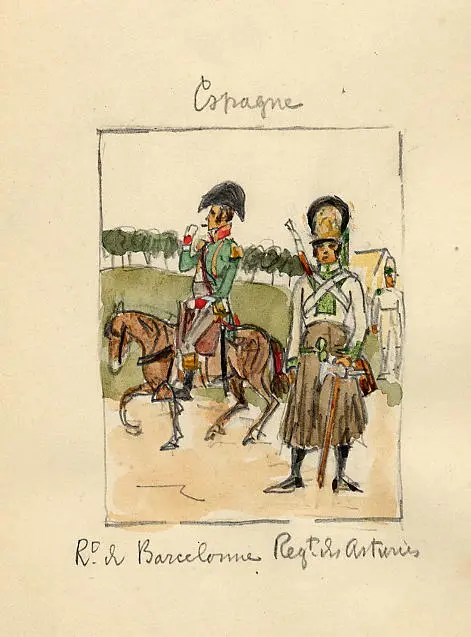 Espagne
Rt. de Barcelonne Regt. des Asturies